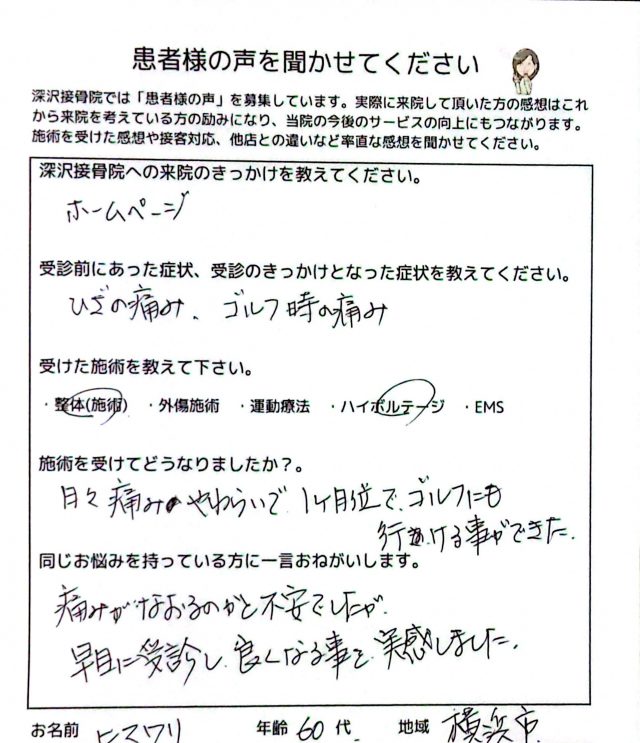 患者様の声を聞かせてください
深沢接骨院では「患者様の声」を募集しています。実際に来院して頂いた方の感想はこれ
から来院を考えている方の励みになり、当院の今後のサービスの向上にもつながります。
施術を受けた感想や接客対応、他店との違いなど率直な感想を聞かせてください。
深沢接骨院への来院のきっかけを教えてください。
ホームページ
受診前にあった症状、受診のきっかけとなった症状を教えてください。
ひざの痛み、ゴルフ時の痛み
受けた施術を教えて下さい。
・整体(施術) ・外傷施術 ・運動療法 ・ハイボルテージ ・EMS
施術を受けてどうなりましたか？。
日々痛みやわらいで、1ヶ月位で、ゴルフにも
行ける事ができた.
同じお悩みを持っている方に一言おねがいします。
痛みがなおるのかと不安でしたが、
早目に受診し、良くなる事を実感しました.
お名前 ヒマワリ 年齢 60 代. 地域 横浜市